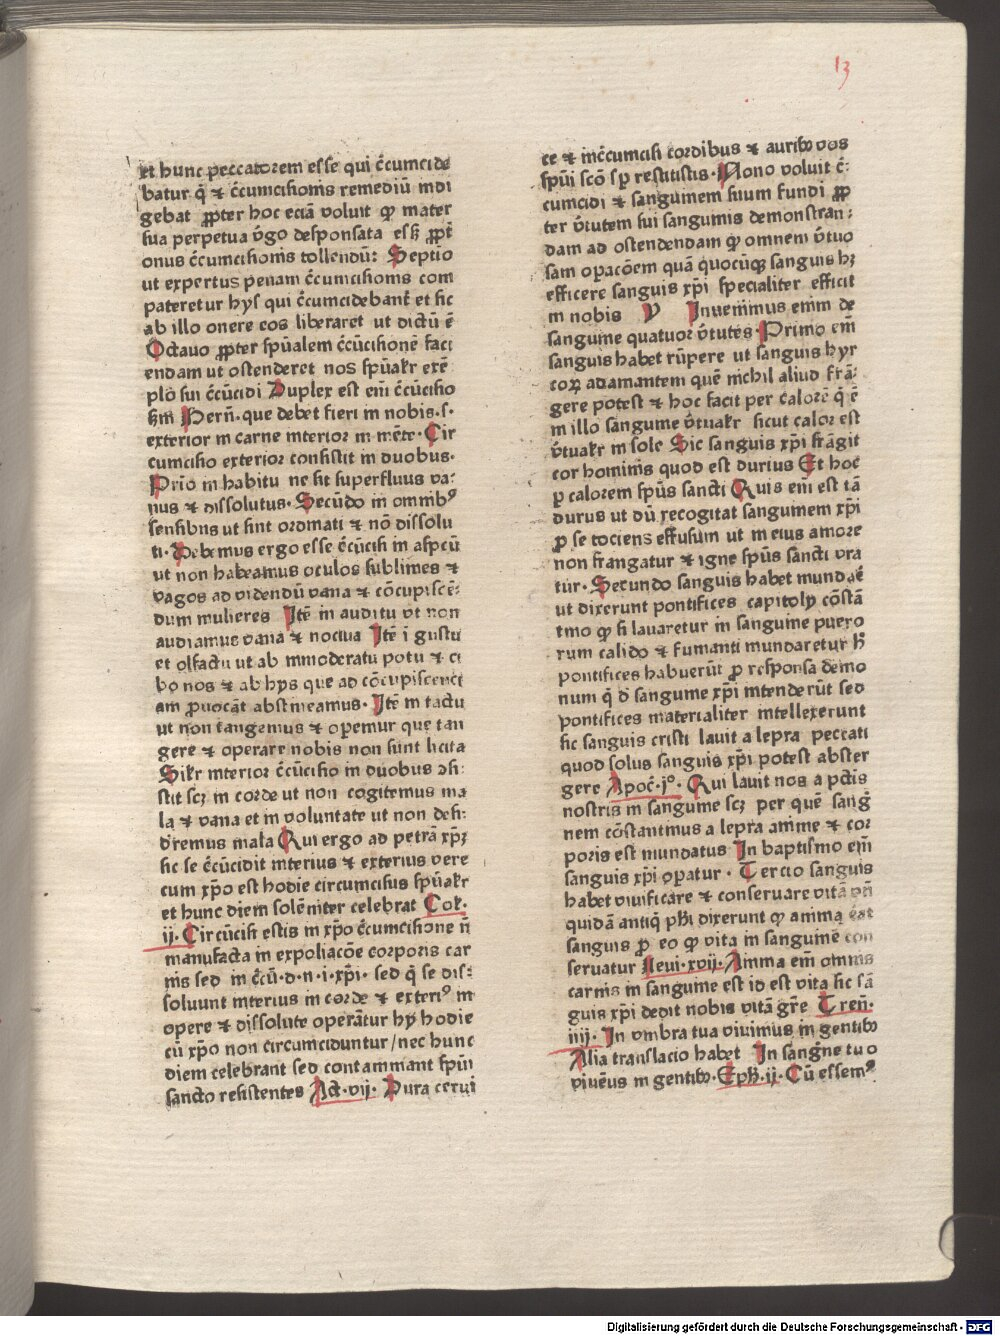 13
et hunc peccatorem esse qui c̄cumcide
batur q̄ ⁊ c̄cumcisionis remediū indi
gebat ꝓpter hoc eciā voluit ꝙ mater
sua perpetua v̄go desponsata
onus c̄cumcisionis tollendū: Septīo
ut expertus penam c̄cumcisionis com
pateretur hys qui c̄cumcidebant̄ et sic
ab illo onere eos liberaret ut dictū ē
Octauo ꝓpter sp̄ualem c̄cūcisionē faci
endam ut ostenderet nos sp̄ualr exē
plo sui c̄cūcidi Duplex est em̄ c̄cūcisio
Bern̄. que debet fieri in nobis.s.
exterior in carne interior in mēte. Cir
cumcisio exterior consistit in duobus.
Prīo in habitu ne sit superfluus va-
nus ⁊ dissolutus. Secūdo in omnibꝰ
sensibus ut sint ordinati ⁊ nō dissolu
ti. Debemus ergo esse c̄cūcisi in aspcū
ut non habeamus oculos sublimes ⁊
vagos ad videndū vana ⁊ cōcupiscē-
dum mulieres Itē in auditu ut non
audiamus vana ⁊ nociua Itē ī gustu
et olfactu ut ab inmoderatu potu ⁊ ci
bo nos ⁊ ab hys que ad cōcupiscenci
am ꝓuocāt abstineamus. Itē in tactu
ut non tangemus ⁊ operemur que tan
gere ⁊ operare nobis non sunt licita
Silr interior c̄cūcisio in duobus ↄsi-
stit scꝫ in corde ut non cogitemus ma
la ⁊ vana et in voluntate ut non desi:
d̄remus mala Qui ergo ad petrā xp̄ꝫ
sic se c̄cūcidit interius ⁊ exterius vere
cum xp̄o est hodie circumcisus sp̄ualr
et hunc diem solēniter celebrat Col.
ij. Circūcisi estis in xp̄o c̄cumcisione n̄
manufacta in expoliacōe corporis car
nis sed in c̄cū.d.n.i.xp̄i. sed q̄ se dis-
soluunt interius in corde ⁊ exteriꝰ in
opere ⁊ dissolute operātur hy hodie
cū xp̄o non circumciduntur/nec hunc
diem celebrant sed contaminant sp̄ui
sancto resistentes Act.vij. Dura cerui
ce ⁊ inc̄cumcisi cordibus ⁊ auribꝰ vos
sp̄ui scō sꝑ restitistis. Nono voluit c̄-
cumcidi ⁊ sanguinem suum fundi ꝓp
ter v̄tutem sui sanguinis demonstran-
dam ad ostendendam ꝙ omnem v̄tuo
sam opacōem quā quocūqꝫ sanguis hꝫ
efficere sanguis xp̄i specialiter efficit
in nobis V Inuenimus enim de
sanguine quatuor v̄tutes. Primo em̄
sanguis habet rūpere ut sanguis hyr
coꝝ adamantem quē nichil aliud frā-
gere potest ⁊ hoc facit per calorē q̄ ē
in illo sanguine v̄tualr sicut calor est
v̄tualr in sole Sic sanguis xp̄i frāgit
cor hominis quod est durius Et hoc
ꝑ calorem sp̄us sancti Quis em̄ est tā
durus ut dū recogitat sanguinem xp̄i
ꝑ se tociens effusum ut in eius amore
non frangatur ⁊ igne sp̄us sancti vra
tur. Secundo sanguis habet mundāe
ut dixerunt pontifices capitoly cōstā
tino ꝙ si lauaretur in sanguine puero
rum calido ⁊ fumanti mundaretur
pontifices habuerūt ꝑ responsa demo
num q̄ d̄ sanguine xp̄i intenderūt sed
pontifices materialiter intellexerunt
sic sanguis cristi lauit a lepra peccati
quod solus sanguis xp̄i potest abster
gere Apoc̄.jº. Qui lauit nos a pctīs
nostris in sanguine scꝫ per quē sanḡ
nem cōstantinus a lepra anime ⁊ cor
poris est mundatus In baptismo em̄
sanguis xp̄i oꝑatur. Tercio sanguis
habet viuificare ⁊ conseruare vitā vn̄
quidā antiq̄ ph̄i dixerunt ꝙ anima eāt
sanguis ꝑ eo ꝙ vita in sanguine con
seruatur Leui.xvij. Anima em̄ omnis
carnis in sanguine est id est vita sic sā
guis xp̄i dedit nobis vitā gr̄e Tren̄.
iiij. In vmbra tua viuimus in gentibꝰ
Alia translacio habet In sanḡne tuo
viuēus in gentibꝰ. Eph̄.ij. Cū essemꝰ
Digitalisierung gefördert durch die Deutsche Forschungsgemeinschaft - DFG